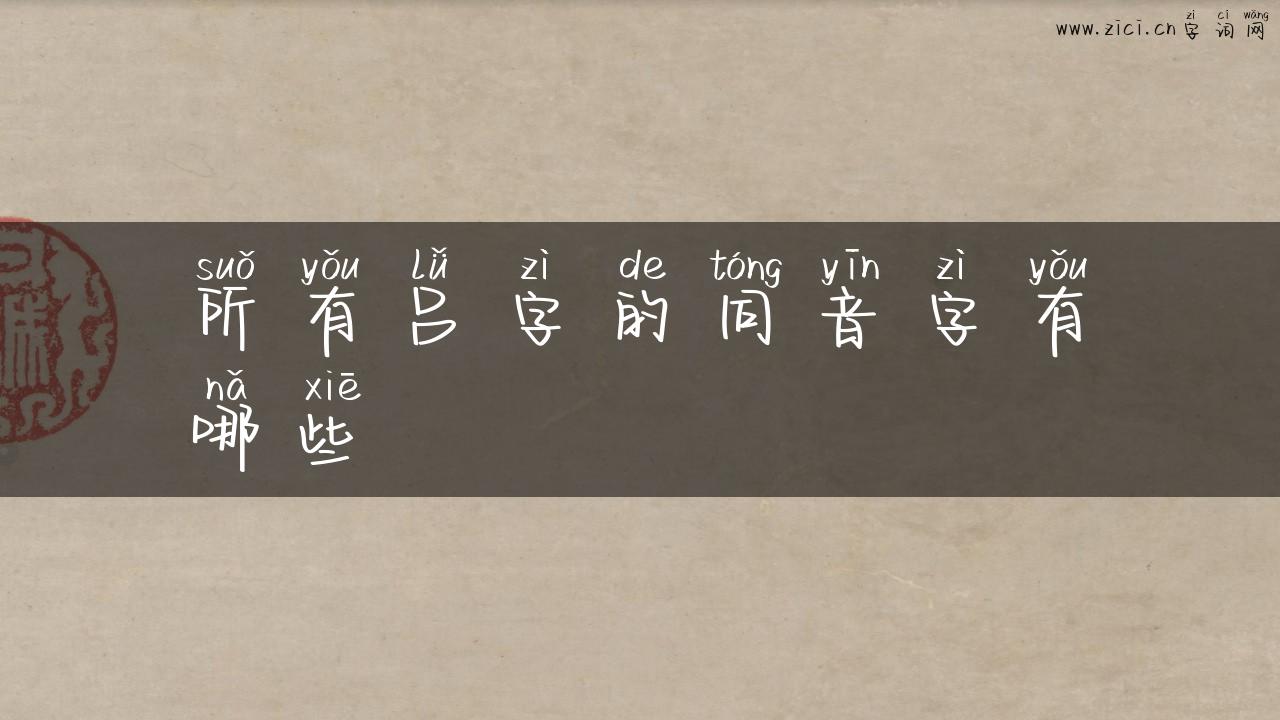 zì cí wǎng
www.zici.cn字词网
suǒ yǒu lǚ zì de tóng yīn zì yǒu
所有吕字的同音字有
nǎ xiē
哪些